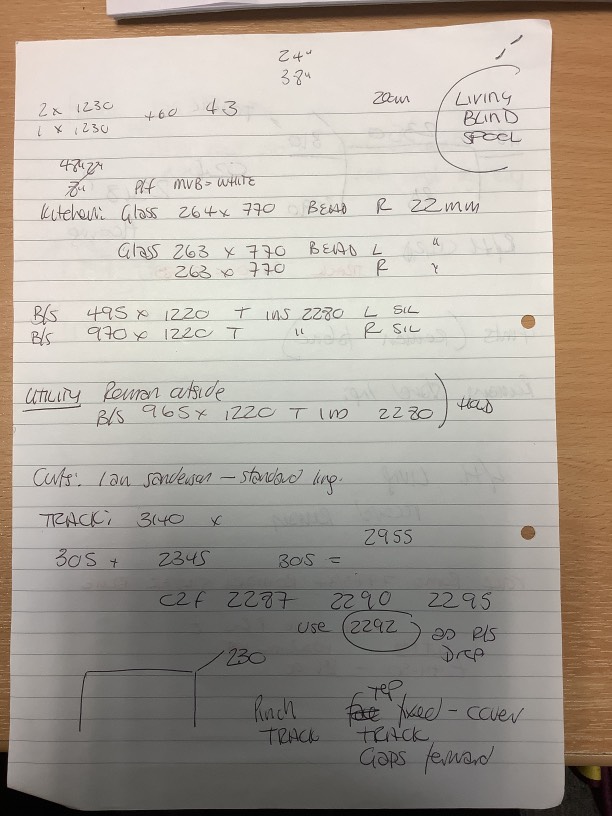 24"
38"
2 x 1230 +60 43 20cm
1 x 1230
LIVING
BLIND
SPOOL
Plf MVB = WHITE
Kitchen: Glass 264 x 770 BEAD R 22mm
Glass 263 x 770 BEAD L "
263 x 770 R "
B/S 495 x 1220 T INS 2280 L SIL
B/S 970 x 1220 T " R SIL
UTILITY Roman outside
B/S 965 x 1220 T INS 2280 HOLD
Curts: Ian Sanderson – standard lng.
TRACK: 3140 x
2955
305 + 2345 305 =
C2F 2287 2290 2295
USE 2292 as R/S
Drop
230
Pinch TOP fixed – cover
TRACK TRACK
Gaps forward